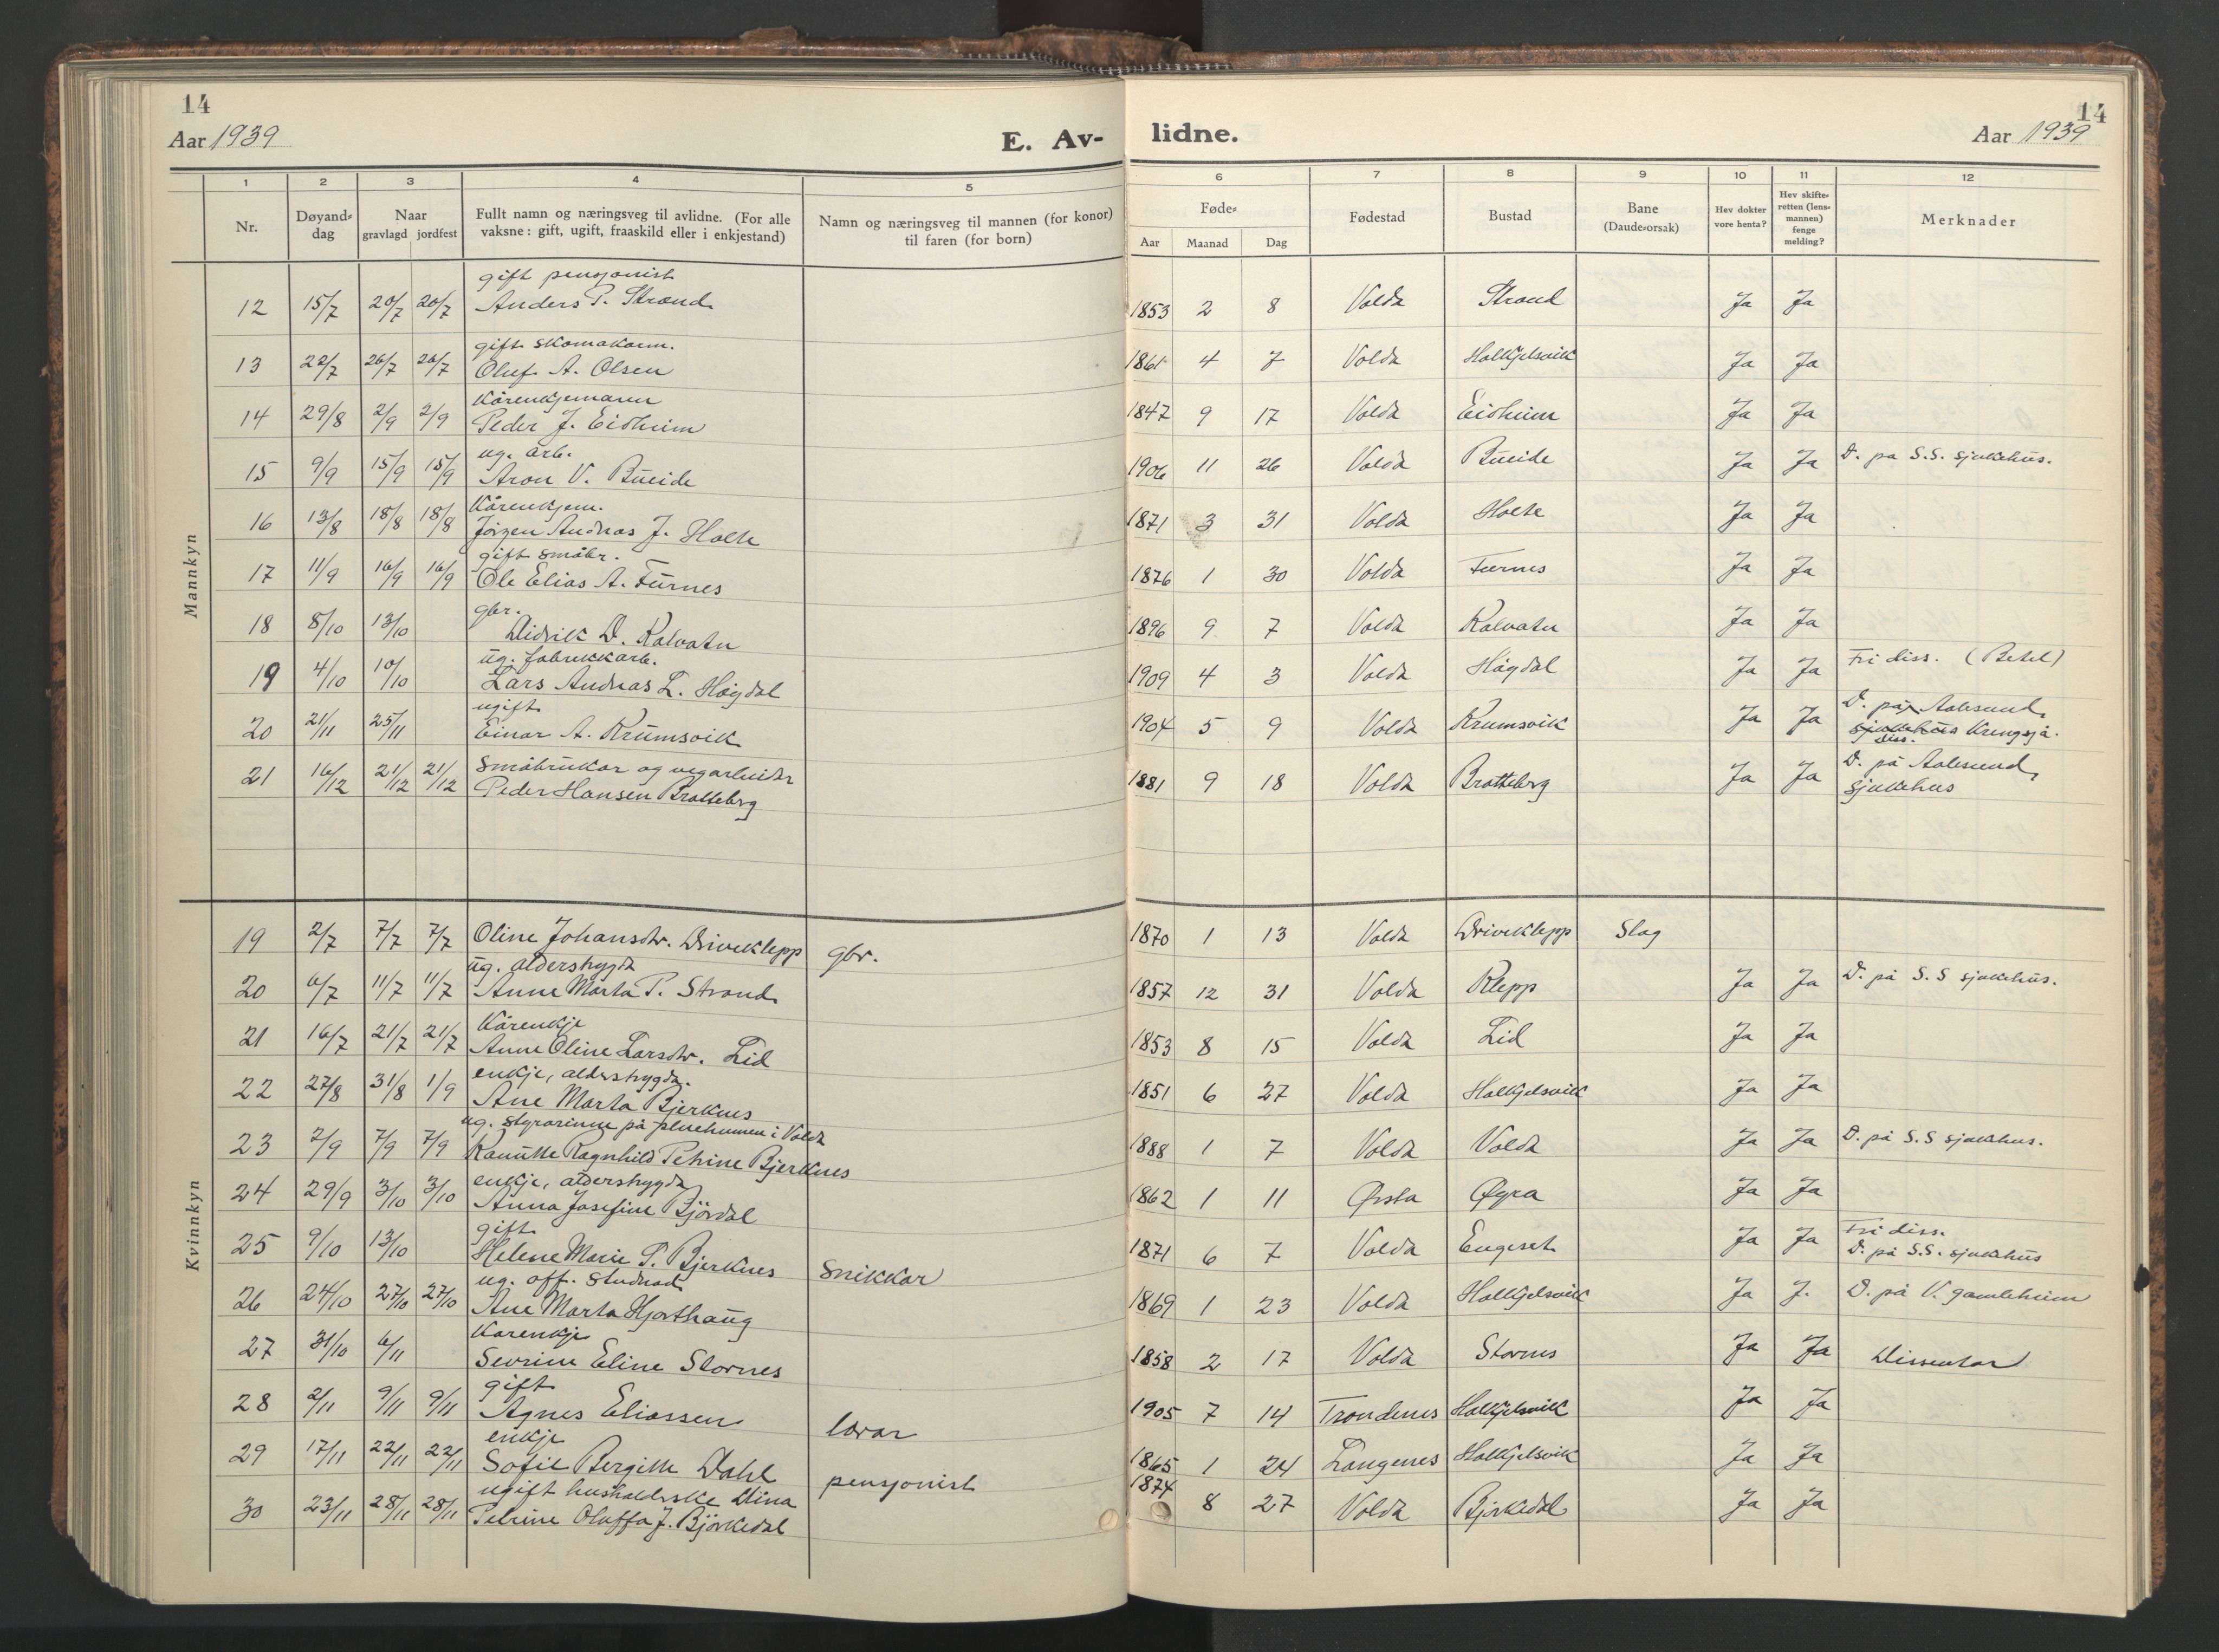 14
Aar 1939
E. Av-
lidne.
14
Aar 1939
1 2 3 4 5 6 7 8 9 10 11 12
Nr.
Døyand-
dag
Naar
gravlagd jordfest
Fullt namn og næringsveg til avlidne. (For alle
vaksne: gift, ugift, fraaskild eller i enkjestand)
Namn og næringsveg til mannen (for konor)
til faren (for born)
Føde-
Aar Maanad Dag
Fødestad
Bustad
Bane
(Daude-orsak)
Hev dokter
vore henta?
Hev skifte-
retten (lens-
mannen)
fenge
melding?
Merknader
Mannkyn
gift pensjonist
12 15/7 20/7 20/7 Anders P. Strand 1853 2 8 Volda Strand Ja Ja
gift skomakarm.
13 22/7 26/7 26/7 Oluf A. Olsen 1861 4 7 Volda Halkjelsvik Ja Ja
Kårenkjemann
14 29/8 2/9 2/9 Peder J. Eidheim 1847 9 17 Volda Eidheim Ja Ja
ug. arb.
15 9/9 15/9 15/9 Aron V. Bueide 1906 11 26 Volda Bueide Ja Ja D. på S.S. sjukehus.
Kårenkjem.
16 13/8 18/8 18/8 Jørgen Andreas J. Holte 1871 3 31 Volda Holte Ja Ja
gift småbr.
17 11/9 16/9 16/9 Ole Elias A. Furnes 1876 1 30 Volda Furnes Ja Ja
gbr.
18 8/10 13/10 Didrik D. Kalvatn 1896 9 7 Volda Kalvatn Ja Ja
ug. fabrikkarb.
19 4/10 10/10 Lars Andreas L. Høgdal 1909 4 3 Volda Høgdal Ja Ja Fri diss. (Betel)
ugift
20 21/11 25/11 Einar A. Krumsvik 1904 5 9 Volda Krumsvik Ja Ja D. på Aalesund
sjukehus Krengsjå.
diss.
Småbrukar og vegarbeider
21 16/12 21/12 21/12 Peder Hansen Bratteberg 1881 9 18 Volda Bratteberg Ja Ja D. på Aalesund
sjukehus
Kvinnkyn
19 2/7 7/7 7/7 Oline Johansdtr. Driveklepp gbr. 1870 1 13 Volda Driveklepp Slag
ug. alderstrygda
20 6/7 11/7 11/7 Anne Marta P. Strand 1857 12 31 Volda Klepp Ja Ja D. på S.S sjukehus.
Kårenkje
21 16/7 21/7 21/7 Anne Oline Larsdtr. Lid 1853 8 15 Volda Lid Ja Ja
enkje, alderstrygda.
22 27/8 31/8 1/9 Ane Marta Bjerknes 1851 6 27 Volda Halkjelsvik Ja Ja
ug. styrarinne på pleieheimen i Volda
23 2/9 7/9 7/9 Kanutte Ragnhild Petrine Bjerknes 1888 1 7 Volda Volda Ja Ja D. på S.S sjukehus.
enkje, alderstrygda
24 29/9 3/10 3/10 Anna Josefine Bjørdal 1862 1 11 Ørsta Øyra Ja Ja
gift
25 9/10 13/10 Helene Marie P. Bjerknes Snikkar 1871 6 7 Volda Engeset Ja Ja Fri diss.
D. på S.S. sjukehus
ug. off. studnad
26 24/10 27/10 27/10 Ane Marta Hjorthaug 1869 1 23 Volda Halkjelsvik Ja J. D. på V. gamleheim
Kårenkje
27 31/10 6/11 Sevrine Eline Stornes 1858 2 17 Volda Stornes Ja Ja Dissentar
gift
28 2/11 9/11 9/11 Agnes Eliassen lærar 1905 7 14 Trondenes Halkjelsvik Ja Ja
enkje
29 17/11 22/11 22/11 Sofie Bergitte Dahl pensjonist 1865 1 24 Langenes Halkjelsvik Ja Ja
ugift husholderske Dina
30 23/11 28/11 28/11 Petrine Oluffa J. Bjørkedal 1874 8 27 Volda Bjørkedal Ja Ja